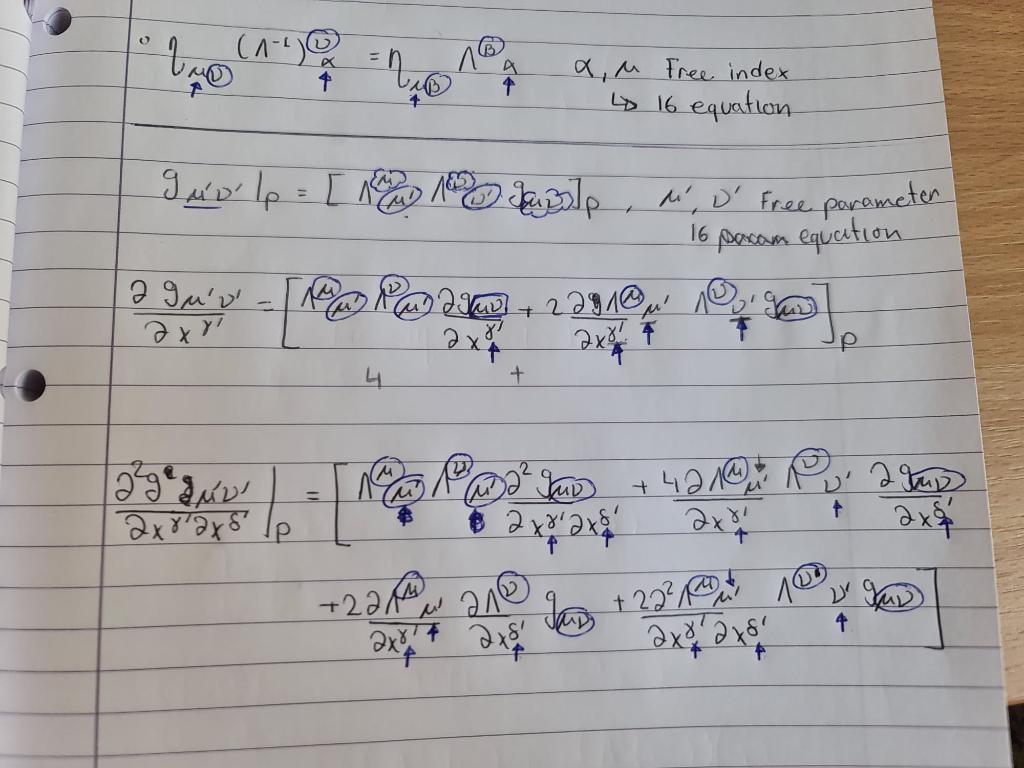 ∘ η_{μν} (Λ⁻¹)^ν_α = η_{μβ} Λ^β_α   α, μ Free index
↳ 16 equation
g_{μ'ν'}|_p = [Λ^μ_{μ'} Λ^ν_{ν'} g_{μν}]_p , μ', ν' Free parameter
16 equation
∂g_{μ'ν'}/∂x^{γ'} = [Λ^μ_{μ'} Λ^ν_{μ'} ∂g_{μν}/∂x^{γ'} + 2 ∂Λ^μ_{μ'}/∂x^{γ'} Λ^ν_{ν'} g_{μν}]_p
4 +
∂²g_{μ'ν'}/∂x^{γ'}∂x^{δ'}|_p = [Λ^μ_{μ'} Λ^ν_{μ'} ∂²g_{μν}/∂x^{γ'}∂x^{δ'} + 4 ∂Λ^μ_{μ'}/∂x^{γ'} Λ^ν_{ν'} ∂g_{μν}/∂x^{δ'}
+ 2 ∂Λ^μ_{μ'}/∂x^{γ'} ∂Λ^ν/∂x^{δ'} g_{μν} + 2 ∂²Λ^μ_{μ'}/∂x^{γ'}∂x^{δ'} Λ^ν_{ν'} g_{μν}]